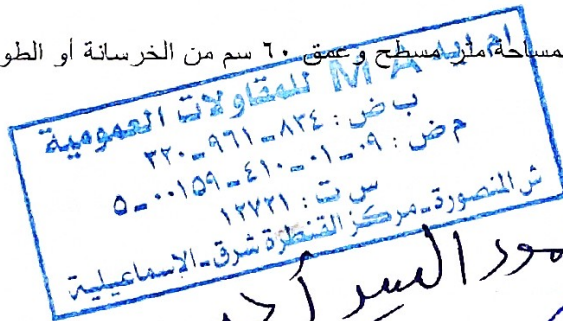 بمساحة متر مسطح وعمق ٦٠ سم من الخرسانة أو الطو
ام ايه M A للمقاولات العمومية
ب ض : ٨٣٤-٩٦١-٣٢٠
م ض : ٠٩-٠١-٤١٠-٠٠١٥٩-٥
س ت : ١٢٧٢١
ش المنصورة - مركز القنطرة شرق - الاسماعيلية
السيد